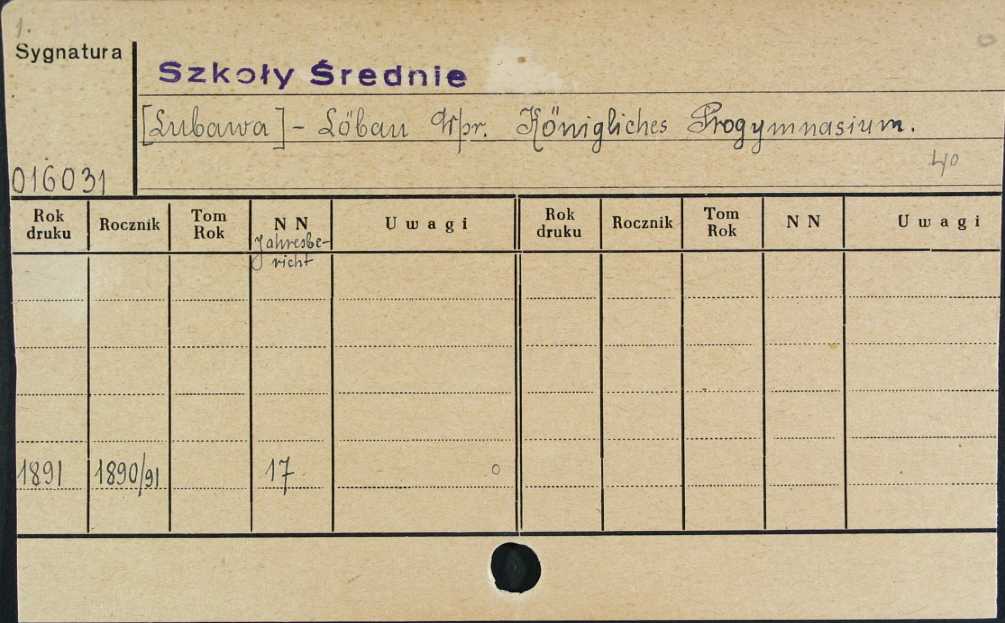 1.
Sygnatura
Szkoły Średnie
[Lubawa] - Löbau Wpr. Königliches Progymnasium.
4°
016031
Rok druku Rocznik Tom Rok N N Uwagi Rok druku Rocznik Tom Rok N N Uwagi
Jahresbe-
richt
1891 1890/91 17